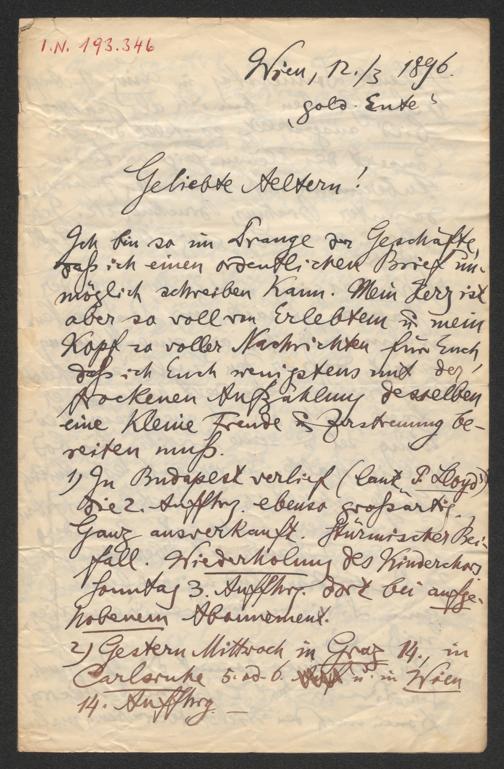 I.N. 193.346
Wien, 12./3 1896.
"gold. Ente"
Geliebte Aeltern!
Ich bin so im Drange der Geschäfte,
daß ich einen ordentlichen Brief un-
möglich schreiben kann. Mein Herz ist
aber so voll von Erlebtem u. mein
Kopf so voller Nachrichten für Euch,
daß ich Euch wenigstens mit der
trockenen Aufzählung desselben
eine kleine Freude u. Zerstreuung be-
reiten muß.
1) In Budapest verlief (laut P. Lloyd)
die 2. Aufführg. ebenso großartig.
Ganz ausverkauft. Stürmischer Bei-
fall. Wiederholung des Kinderchors
Sonntag 3. Aufführg. dort bei aufge-
hobenem Abonnement.
2) Gestern Mittwoch in Graz 14., in
Carlsruhe 5. od. 6. u. in Wien
14. Aufführg. —